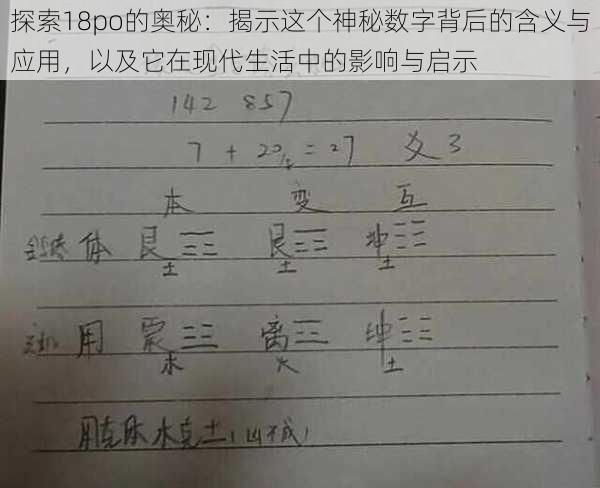 探索18po的奥秘：揭示这个神秘数字背后的含义与
应用，以及它在现代生活中的影响与启示
142 857
7 + 20 = 27 爻 3
本 变 互
体 艮 ☶ 艮 ☶ 坤 ☷
土 土 土
用 震 ☳ 离 ☲ 坤 ☷
木 火 土
用克体 木克土（凶不成）